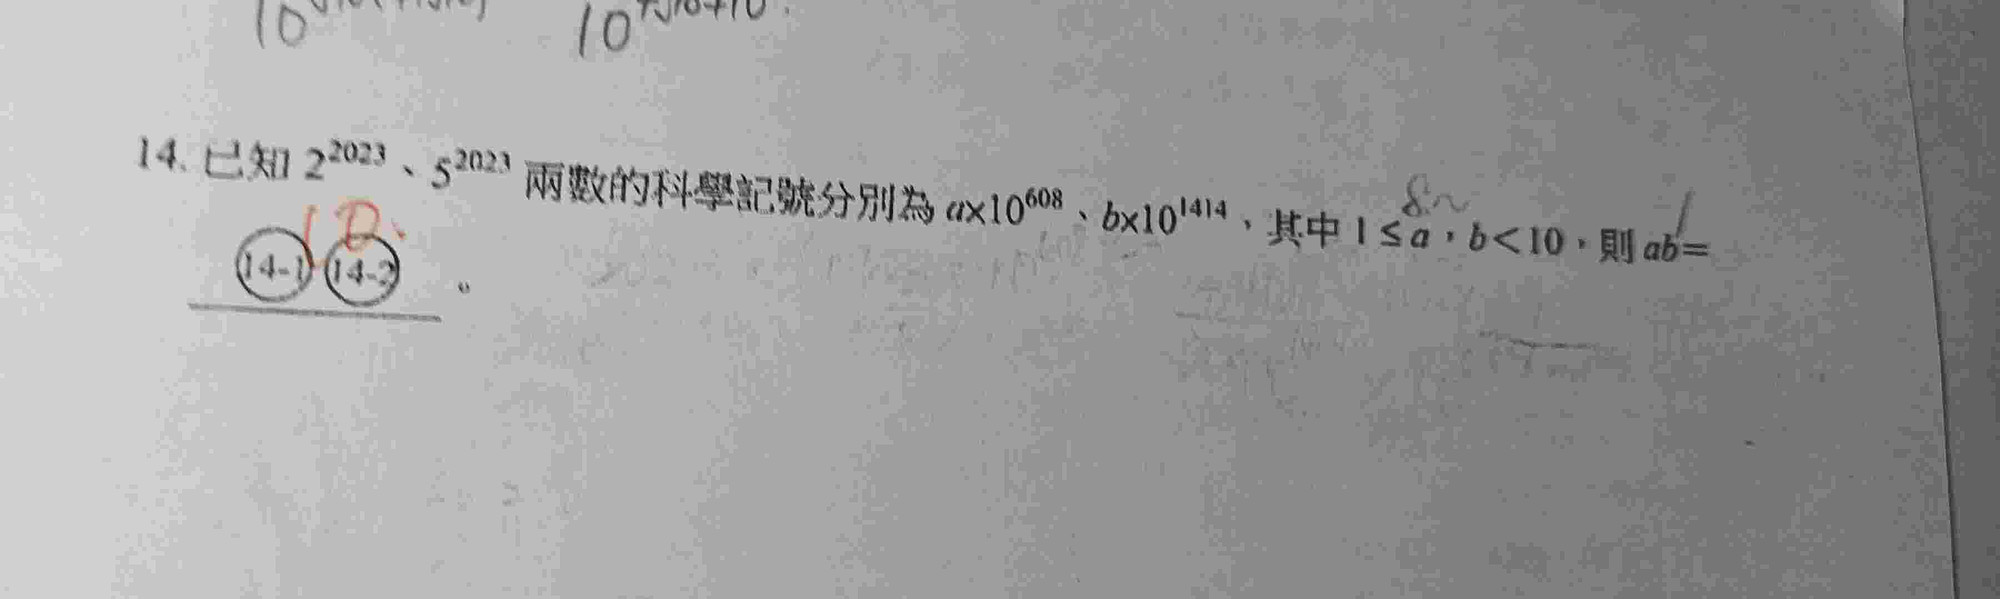 14. 已知 2²⁰²³、5²⁰²³ 兩數的科學記號分別為 a×10⁶⁰⁸、b×10¹⁴¹⁴,其中 1≤a,b<10,則 ab=
14-1 14-2 。